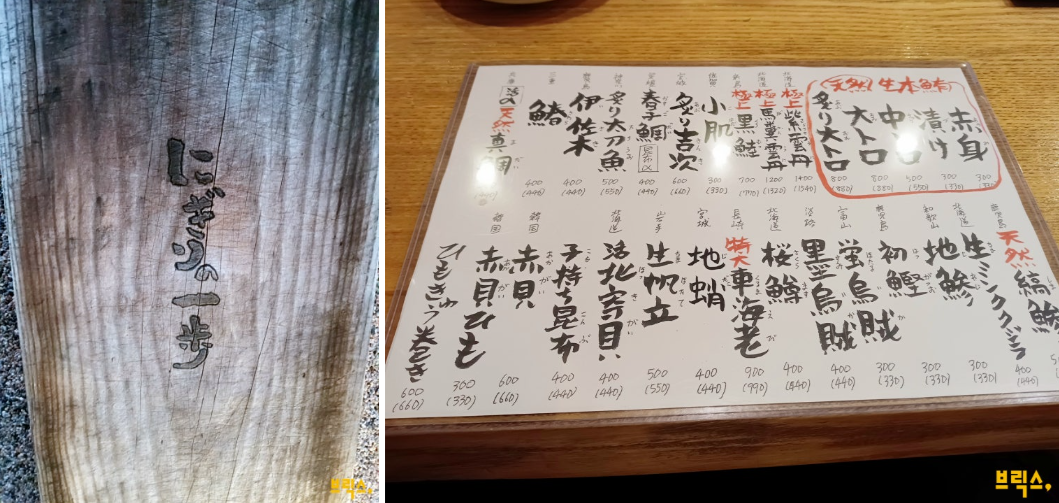 にぎりの一歩
브릭스,
天然 生本鮪
赤身 300 (330)
漬け 300 (330)
中トロ 500 (550)
大トロ 800 (880)
炙り大トロ 800 (880)
北海道 極上 紫雲丹 1400 (1540)
北海道 極上 馬糞雲丹 1200 (1320)
極上 黒鮭 700 (770)
小肌 300 (330)
宮城 炙り吉次 600 (660)
宮城 春子鯛 昆布〆 400 (440)
炙り太刀魚 500 (550)
伊佐木 400 (440)
三重 鰆 400 (440)
兵庫 活〆 天然 真鯛
鹿児島 天然 縞鯵
北海道 生ミンククジラ 400 (440)
和歌山 地鯵 300 (330)
鹿児島 初鰹 300 (330)
富山 蛍烏賊 300 (330)
淡路 黒烏賊 400 (440)
北海道 桜鱒 400 (440)
長崎 特大 車海老 900 (990)
宮城 地蛸 400 (440)
岩手 生帆立 500 (550)
北海道 活北寄貝 400 (440)
子持ち昆布 400 (440)
韓国 赤貝 600 (660)
韓国 赤貝ひも 300 (330)
ひもきゅう巻き 600 (660)
브릭스,